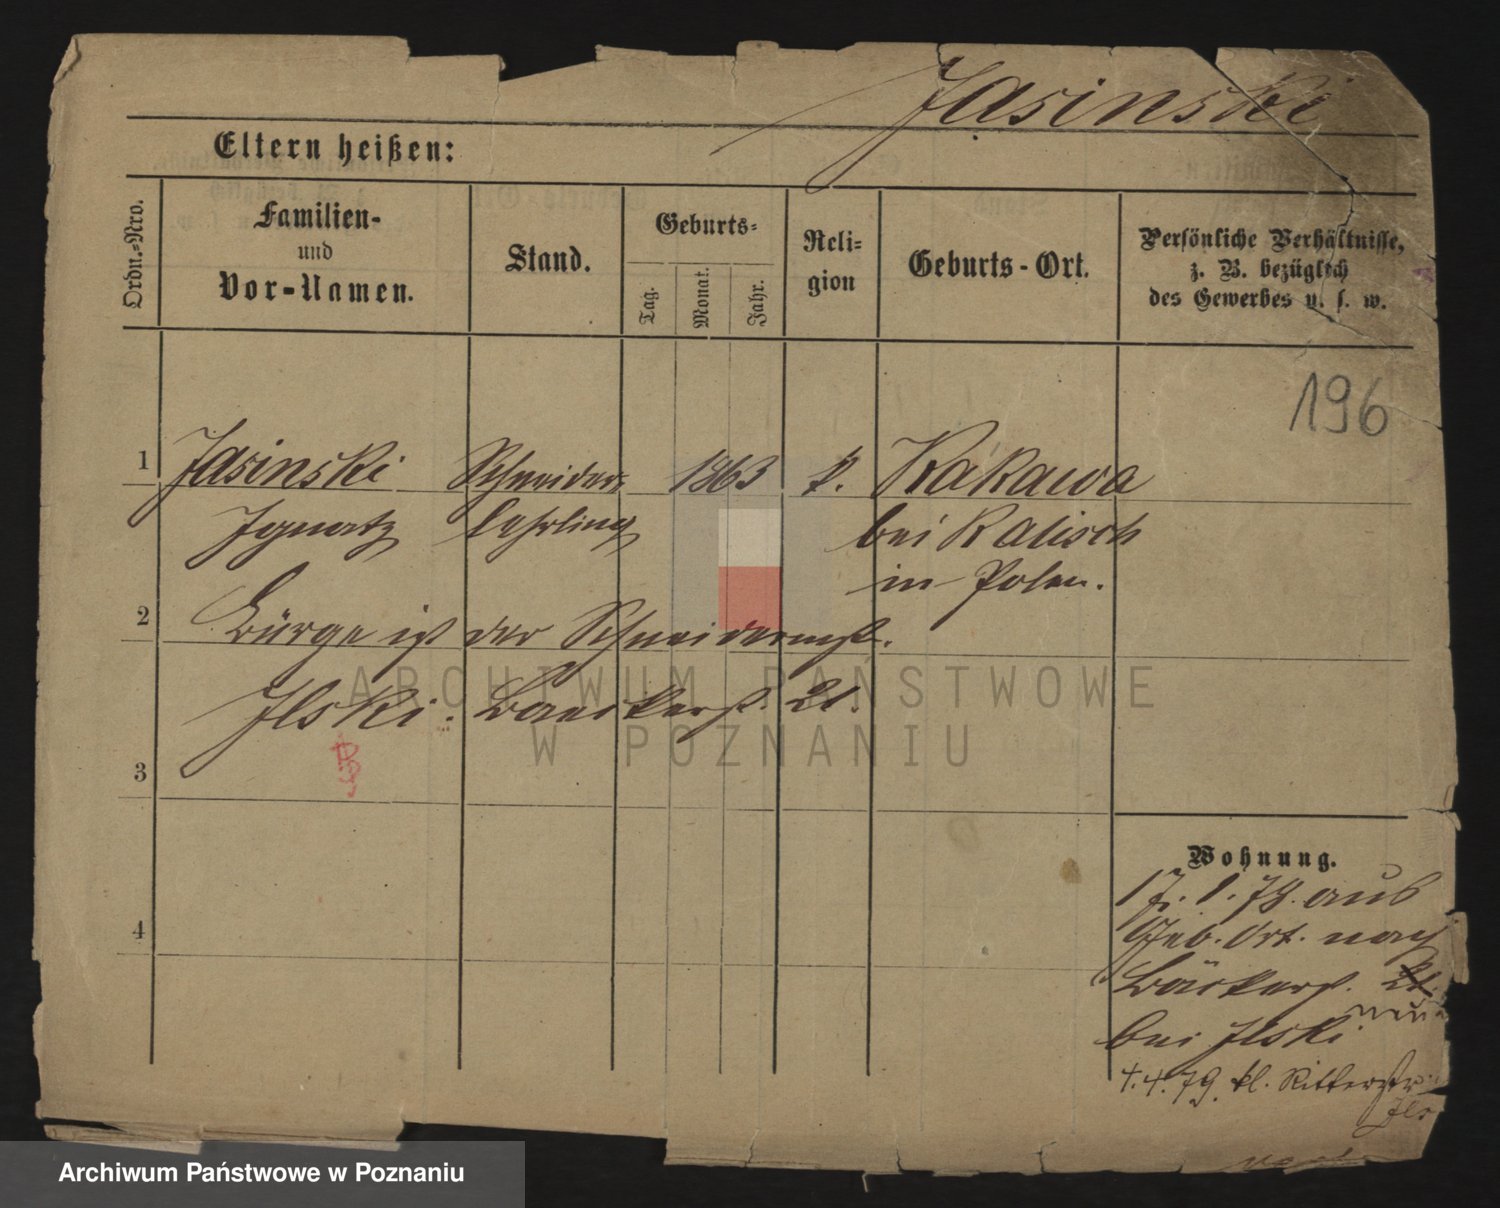 Jasinski
Eltern heißen:
Ordn.-Nro.
Familien-
und
Vor-Namen.
Stand.
Geburts-
Tag.
Monat.
Jahr.
Reli-
gion
Geburts-Ort.
Persönliche Verhältnisse,
z. B. bezüglich
des Gewerbes u. s. w.
196
1 Jasinski Schneider 1863 k. Kakawa
Ignatz Lehrling bei Kalisch
in Polen.
2 Bürge ist der Schneidermstr.
Ilski. Baeckerstr. 21.
3
4
Wohnung.
17. 1. 78. aus
Geb. Ort. nach
Bäckerstr. 21.
bei Ilski
1. 4. 79. kl. Ritterstr.
ARCHIWUM PAŃSTWOWE
W POZNANIU
Archiwum Państwowe w Poznaniu